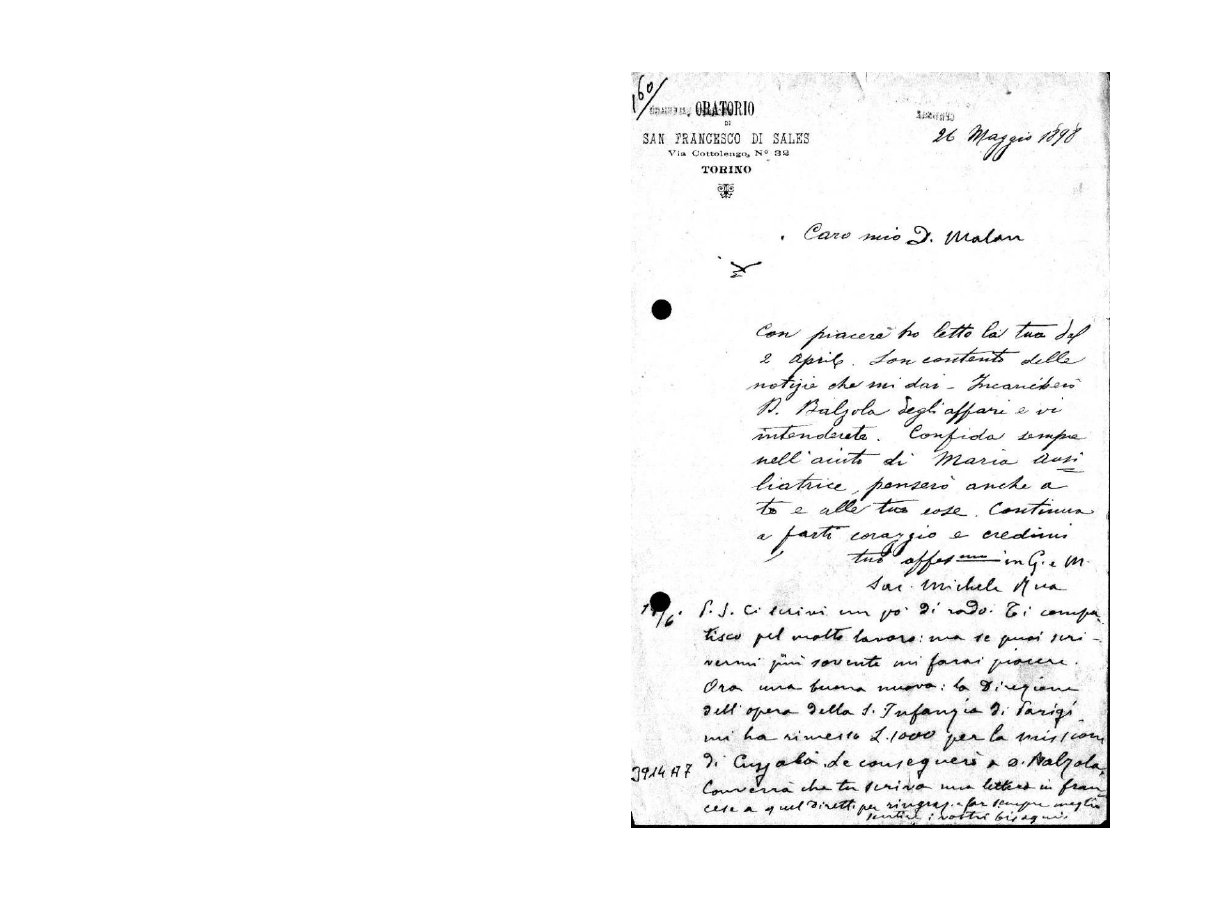 160/
ORATORIO
DI
SAN FRANCESCO DI SALES
Via Cottolengo, N° 32
TORINO
26 Maggio 1898
Caro mio D. Malan
Con piacere ho letto la tua del
2 Aprile. Son contento delle
notizie che mi dai - Incaricherò
D. Balzola degli affari e vi
intenderete. Confida sempre
nell'aiuto di Maria Ausi
liatrice, penserò anche a
te e alle tue cose. Continua
a farti coraggio e credimi
tuo affmo in G. e M.
Sac. Michele Rua
P. S. Ci scrivi un po' di rado. Ti compa
tisco pel molto lavoro: ma se puoi scri-
vermi più sovente mi farai piacere.
Ora una buona nuova: la Direzione
dell'opera della S. Infanzia di Parigi
mi ha rimesso L. 1000 per la mission
di Cuyabà. Le consegnerò a D. Balzola.
3914 A7
Converrà che tu scriva una lettera in fran
cese a quel Dirett. per ringraz. e far sempre meglio
sentire i vostri bisogni